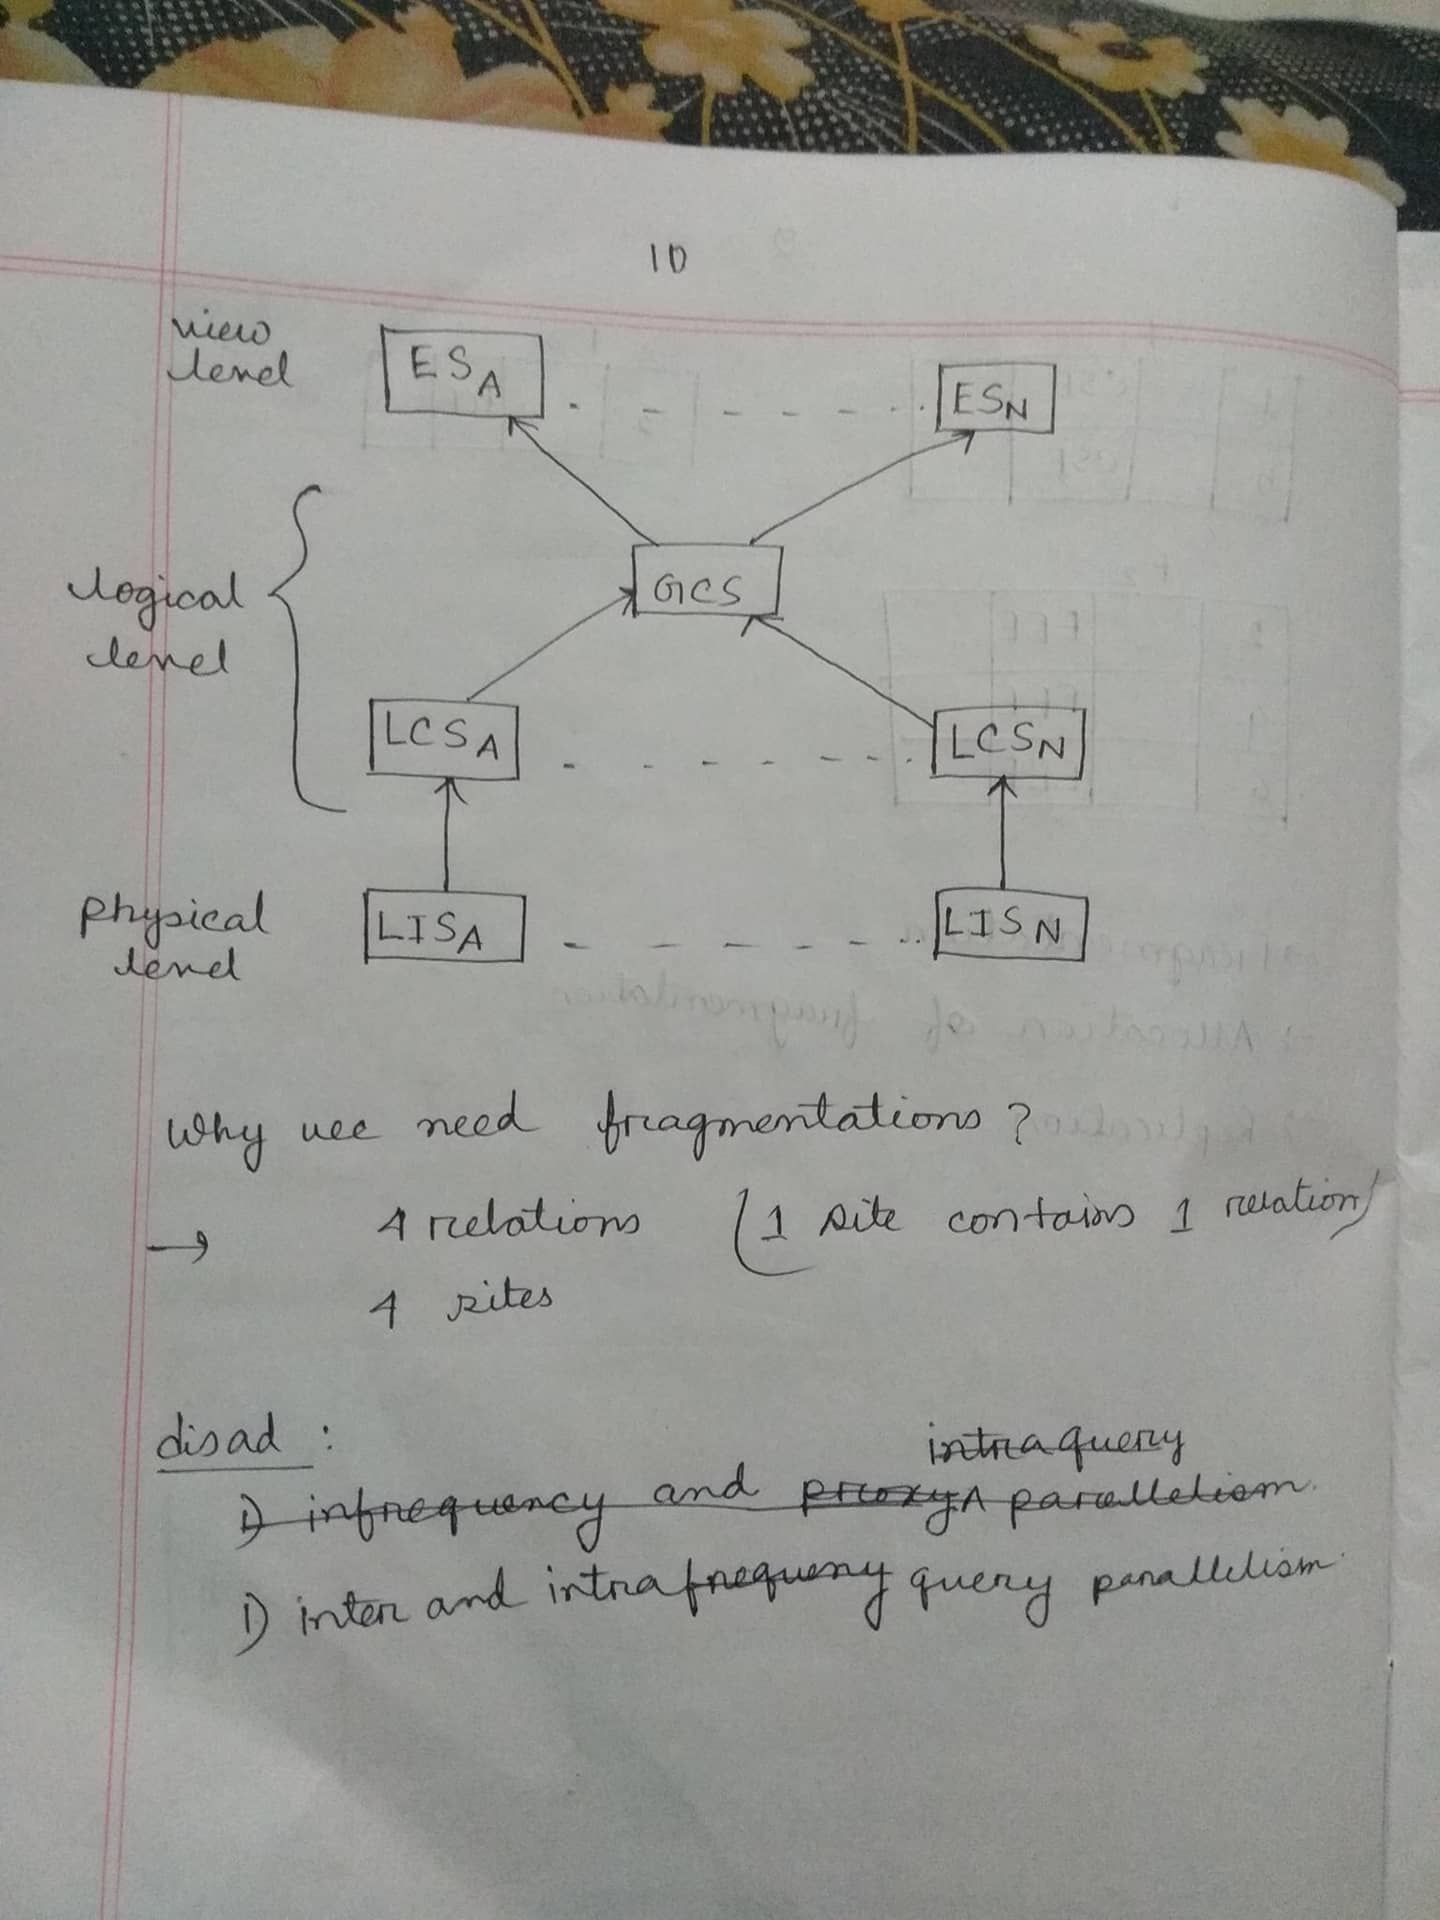 10
view
level
ES A
ES N
GCS
logical
level
LCS A
LCS N
physical
level
LIS A
LIS N
Why we need fragmentations?
→ 4 relations (1 site contains 1 relation)
4 sites
disad :
intraquery
i) infrequency and proxy ∧ parallelism.
i) inter and intrafrequeny query parallelism.